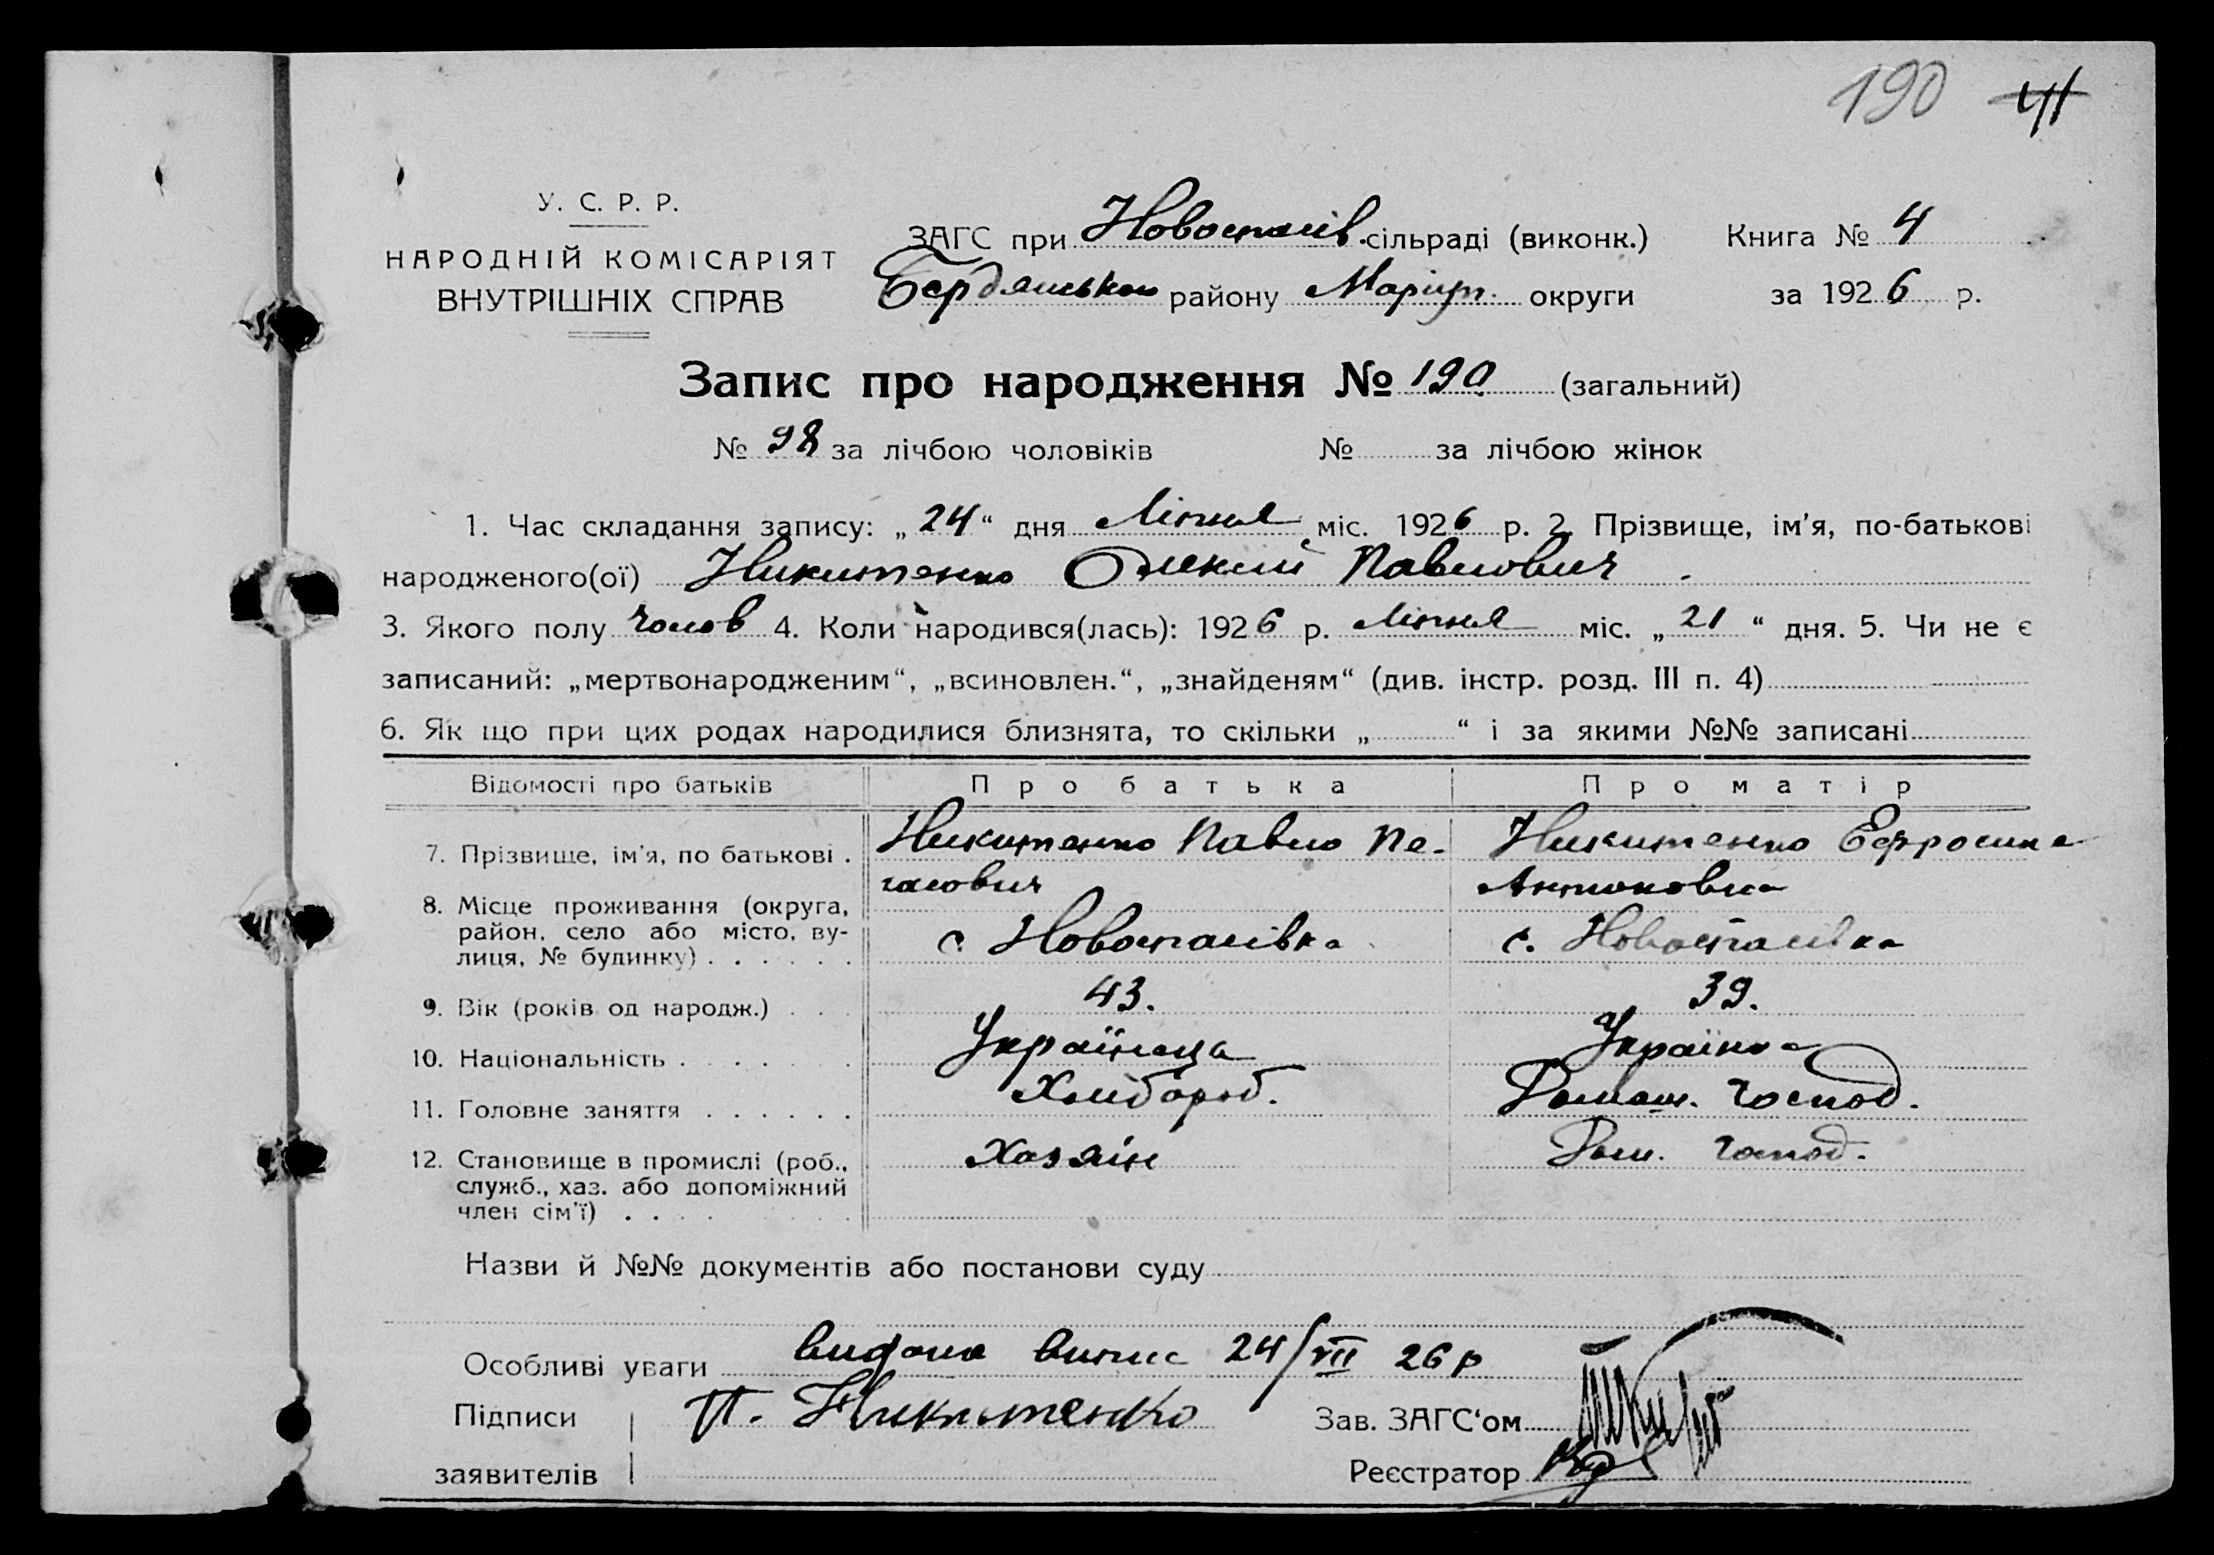 190 41
У. С. Р. Р.
НАРОДНІЙ КОМІСАРІЯТ
ВНУТРІШНІХ СПРАВ
ЗАГС при Новоспасів. сільраді (виконк.) Книга № 4
Бердянськом району Маріуп. округи за 1926 р.
Запис про народження № 190 (загальний)
№ 98 за лічбою чоловіків № за лічбою жінок
1. Час складання запису: „24“ дня Липня міс. 1926 р. 2. Прізвище, ім'я, по-батькові
народженого(ої) Никитенко Олексій Павлович.
3. Якого полу чолов 4. Коли народився(лась): 1926 р. Липня міс. „21“ дня. 5. Чи не є
записаний: „мертвонародженим“, „всиновлен.“, „знайденям“ (див. інстр. розд. III п. 4)
6. Як що при цих родах народилися близнята, то скільки „ “ і за якими №№ записані
Відомості про батьків Про батька Про матір
7. Прізвище, ім'я, по батькові . Никитенко Павло Никитенко Ефросина
Антоновна
8. Місце проживання (округа,
район, село або місто, ву-
лиця, № будинку) . . . . . . с. Новоспасівка с. Новоспасівка
9. Вік (років од народж.) . . . 43. 39.
10. Національність . . . . . . Українець Українка
11. Головне заняття . . . . . . Хлібороб. Домаш. господ.
12. Становище в промислі (роб., Хазяїн Дом. господ.
служб., хаз. або допоміжний
член сім'ї) . . . .
Назви й №№ документів або постанови суду
Особливі уваги видана випис 24/VII 26 р
Підписи П. Никитенко Зав. ЗАГС'ом
заявителів Реєстратор